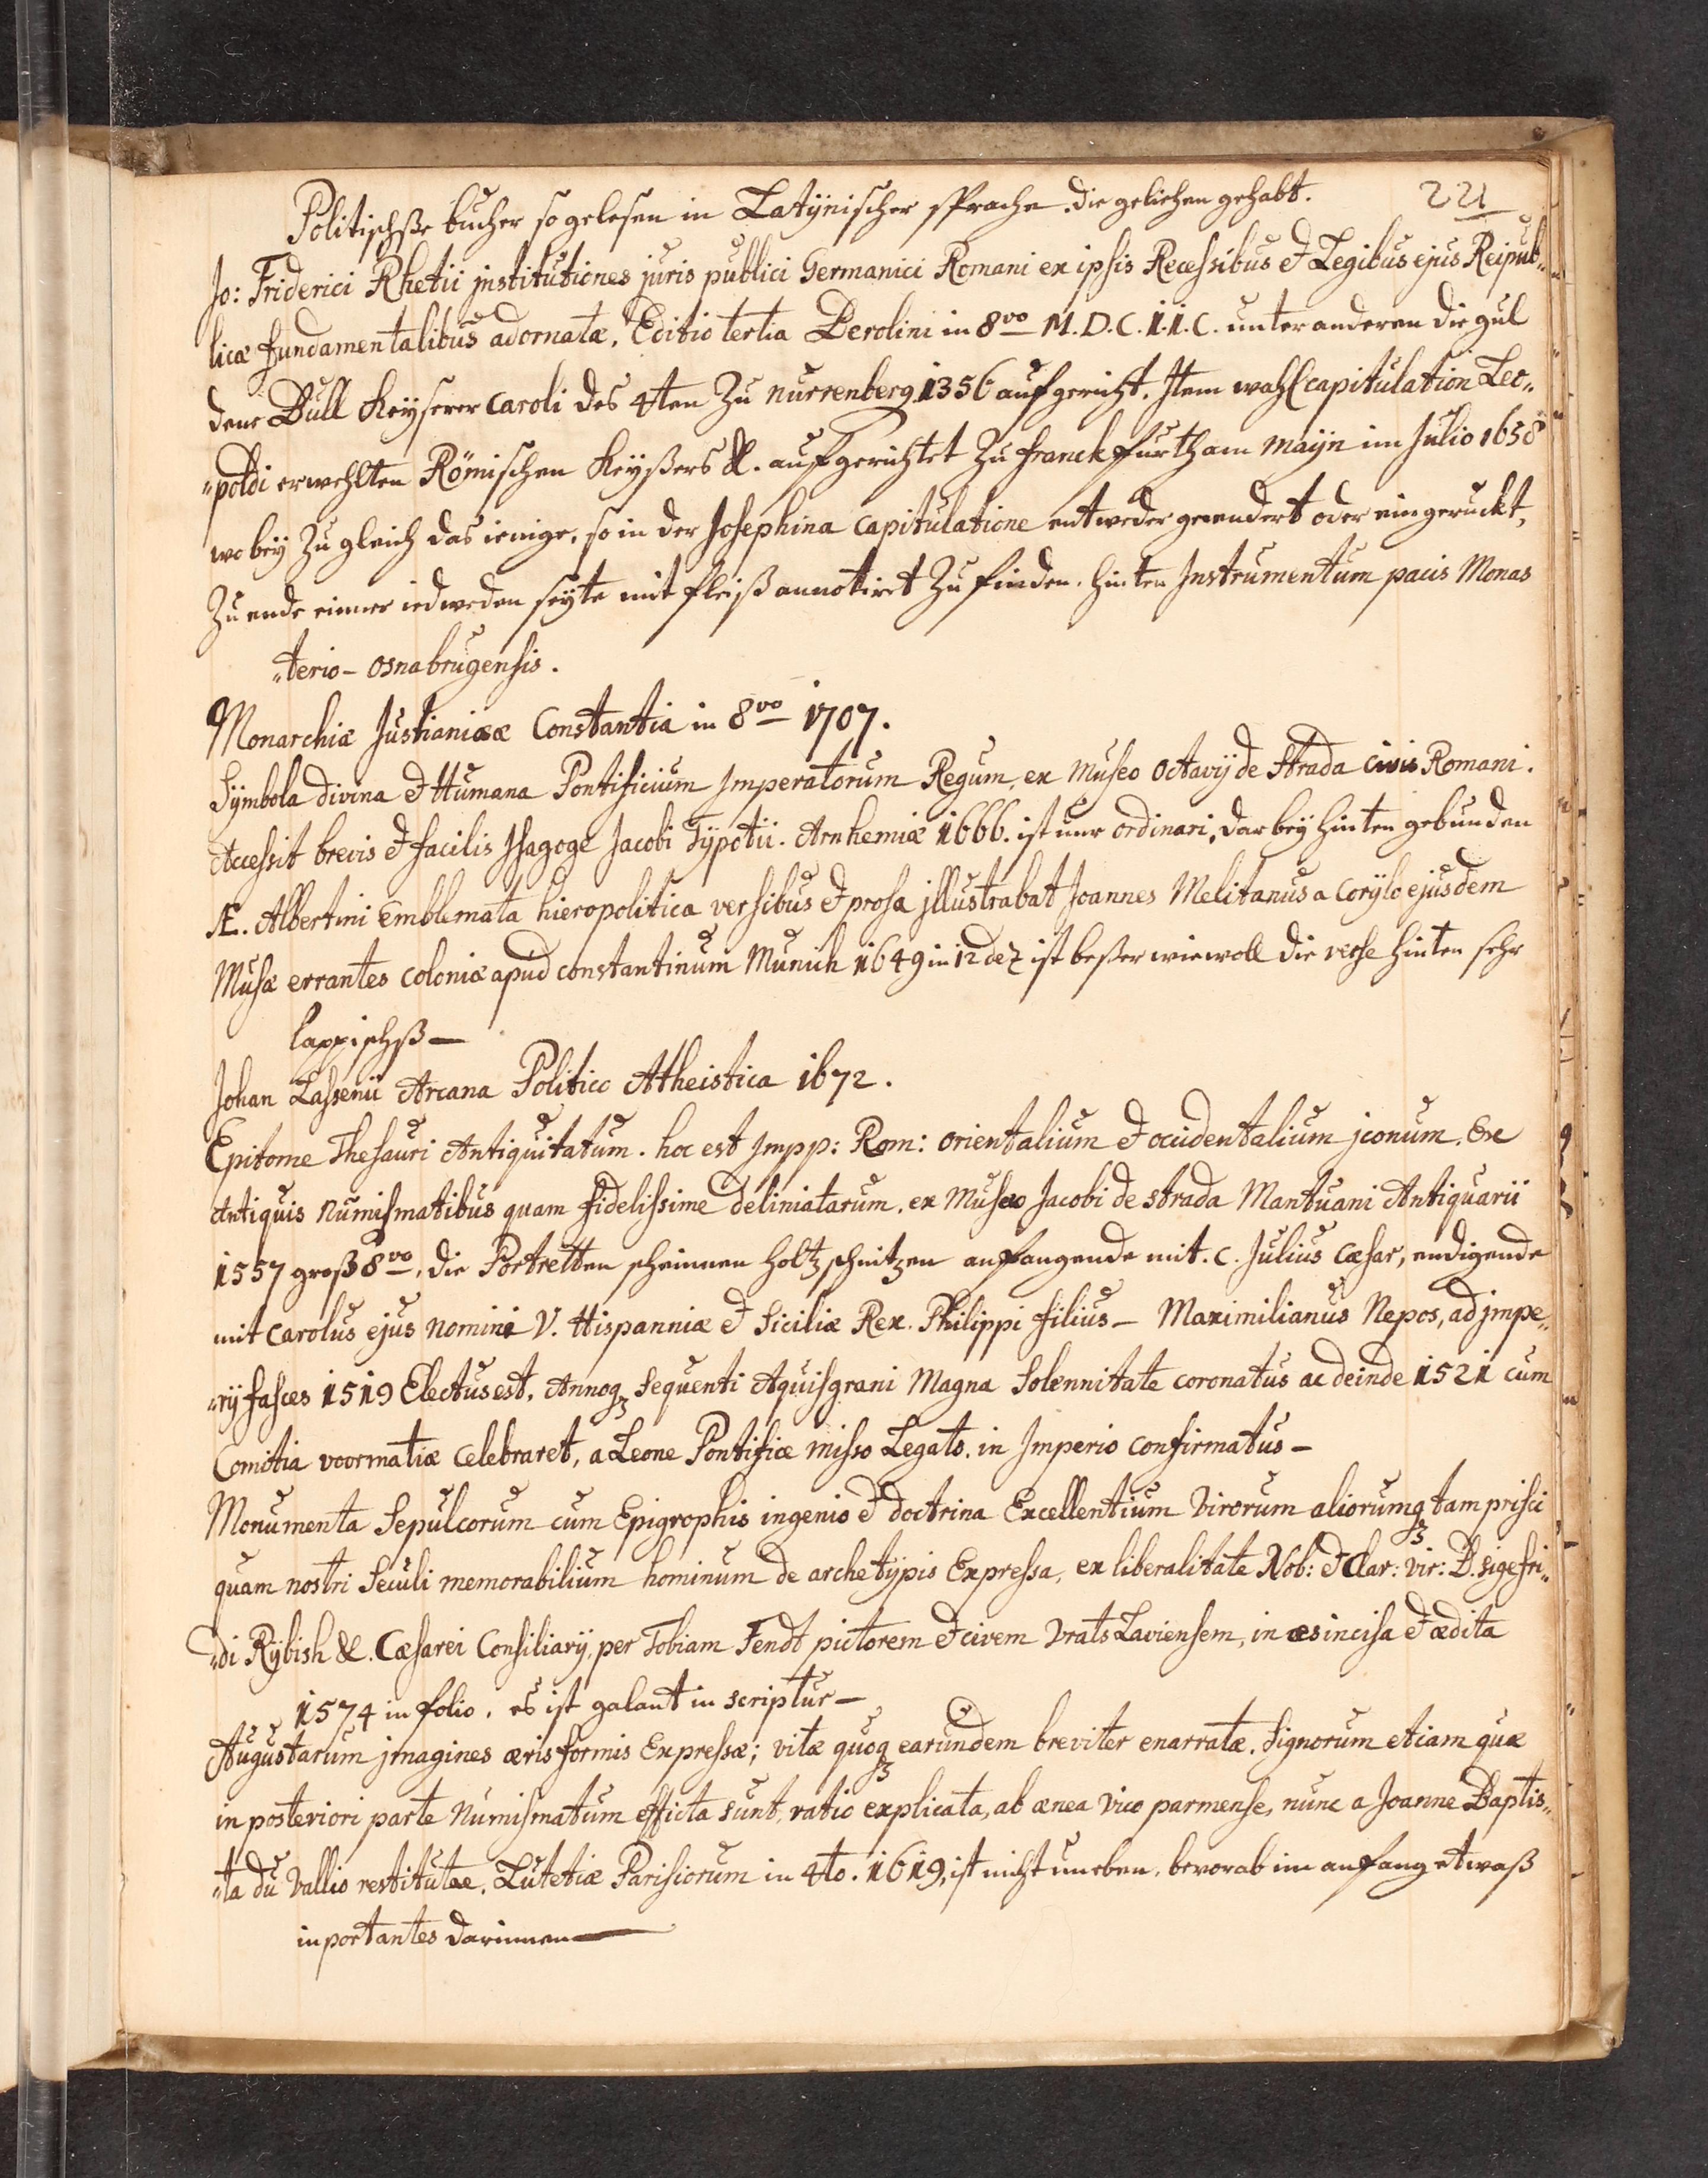 Politischße bucher so gelesen in Latÿnischer sprache. die geliehen gehabt. 221
Jo: Friderici Rhetii jnstitutiones juris publici Germanici Romani ex ipsis Recessibus et Legibus ejus Reipub„
licæ fundamentalibus adornatæ, Editio tertia Berolini in 8vo M.D.C.I.I.C. unter anderen die gul
dene Bull Keÿserer Caroli des 4ten Zu nurrenberg 1356 aufgericht. Jtem wahlcapitulation Leo„
„poldi erwehlten Römischen Keÿßers &. aufgerichtet Zu franckfurth am Maÿn im Julio 1658
wobeÿ Zu gleich das ienige, so in der Josephina Capitulatione entweder geendert oder eingeruckt,
Zu ende einer iedweden seÿte mit fleiß annotiret Zu finden. hinten Instrumentum pacis Monas
„terio-osnabrugensis.
Monarchiæ Justianiææ Constantia in 8vo 1707.
Sÿmbola divina et Humana Pontificium Jmperatorum Regum, ex Museo Octavij de Strada Civis Romani.
Accessit brevis et facilis Jsagoge Jacobi Tÿpotii. Arnhemiæ 1666. ist nur ordinari, darbeÿ hinten gebunden
Æ. Albertini Emblemata hieropolitica versibus et prosa jllustrabat Joannes Melitanus a Corÿlo ejusdem
Musæ errantes coloniæ apud constantinum Munich 1649 in 12 dez ist beßer wiewoll die verse hinten sehr
lappischß—
Johan Lassenii Arcana Politico Atheistica 1672.
Epitome Thesauri Antiquitatum. hoc est Jmpp: Rom: orientalium et occidentalium jconum. Ex
Antiquis Numismatibus quam fidelissime deliniatarum. ex Museo Jacobi de strada Mantuani Antiquarii
1557 groß 8vo, die Portretten scheinen holtzschnitzen anfangende mit. C. Julius Cæsar, endigende
mit Carolus ejus nomini V. Hispanniæ et Siciliæ Rex. Philippi filius— Maximilianus Nepos, ad jmpe„
„rij fasces 1519 Electus est. Annoqꝫ sequenti Aquisgrani Magna Solennitate coronatus ac deinde 1521 cum
Comitia voormatiæ Celebraret, a Leone Pontifice misso Legato. in Imperio confirmatus—
Monumenta Sepulcorum cum Epigrophis ingenio et doctrina Excellentium Virorum aliorumqꝫ tam prisci
quam nostri Seculi memorabilium hominum de archetÿpis Expressa, ex liberalitate Nob: et Clar: vir: D. sigefri„
„di Rÿbish &. Cæsarei Consiliarij, per Tobiam Fendt pictorem et civem Vrats Laviensem, in æs incisa et ædita
1574 in folio. es ist galant in scriptur—
Augustarum jmagines æris formis Expressæ; vitæ quoqꝫ earundem breviter enarratæ. Signorum etiam quæ
in posteriori parte Numismatum efficta sunt, ratio explicata, ab ænea Vico parmense, nunc a Joanne Baptis„
„ta du Vallio restitutæ. Lutetiæ Parisiorum in 4to. 1619, ist nicht uneben. bevorab im anfang etwaß
inportantes darinnen—